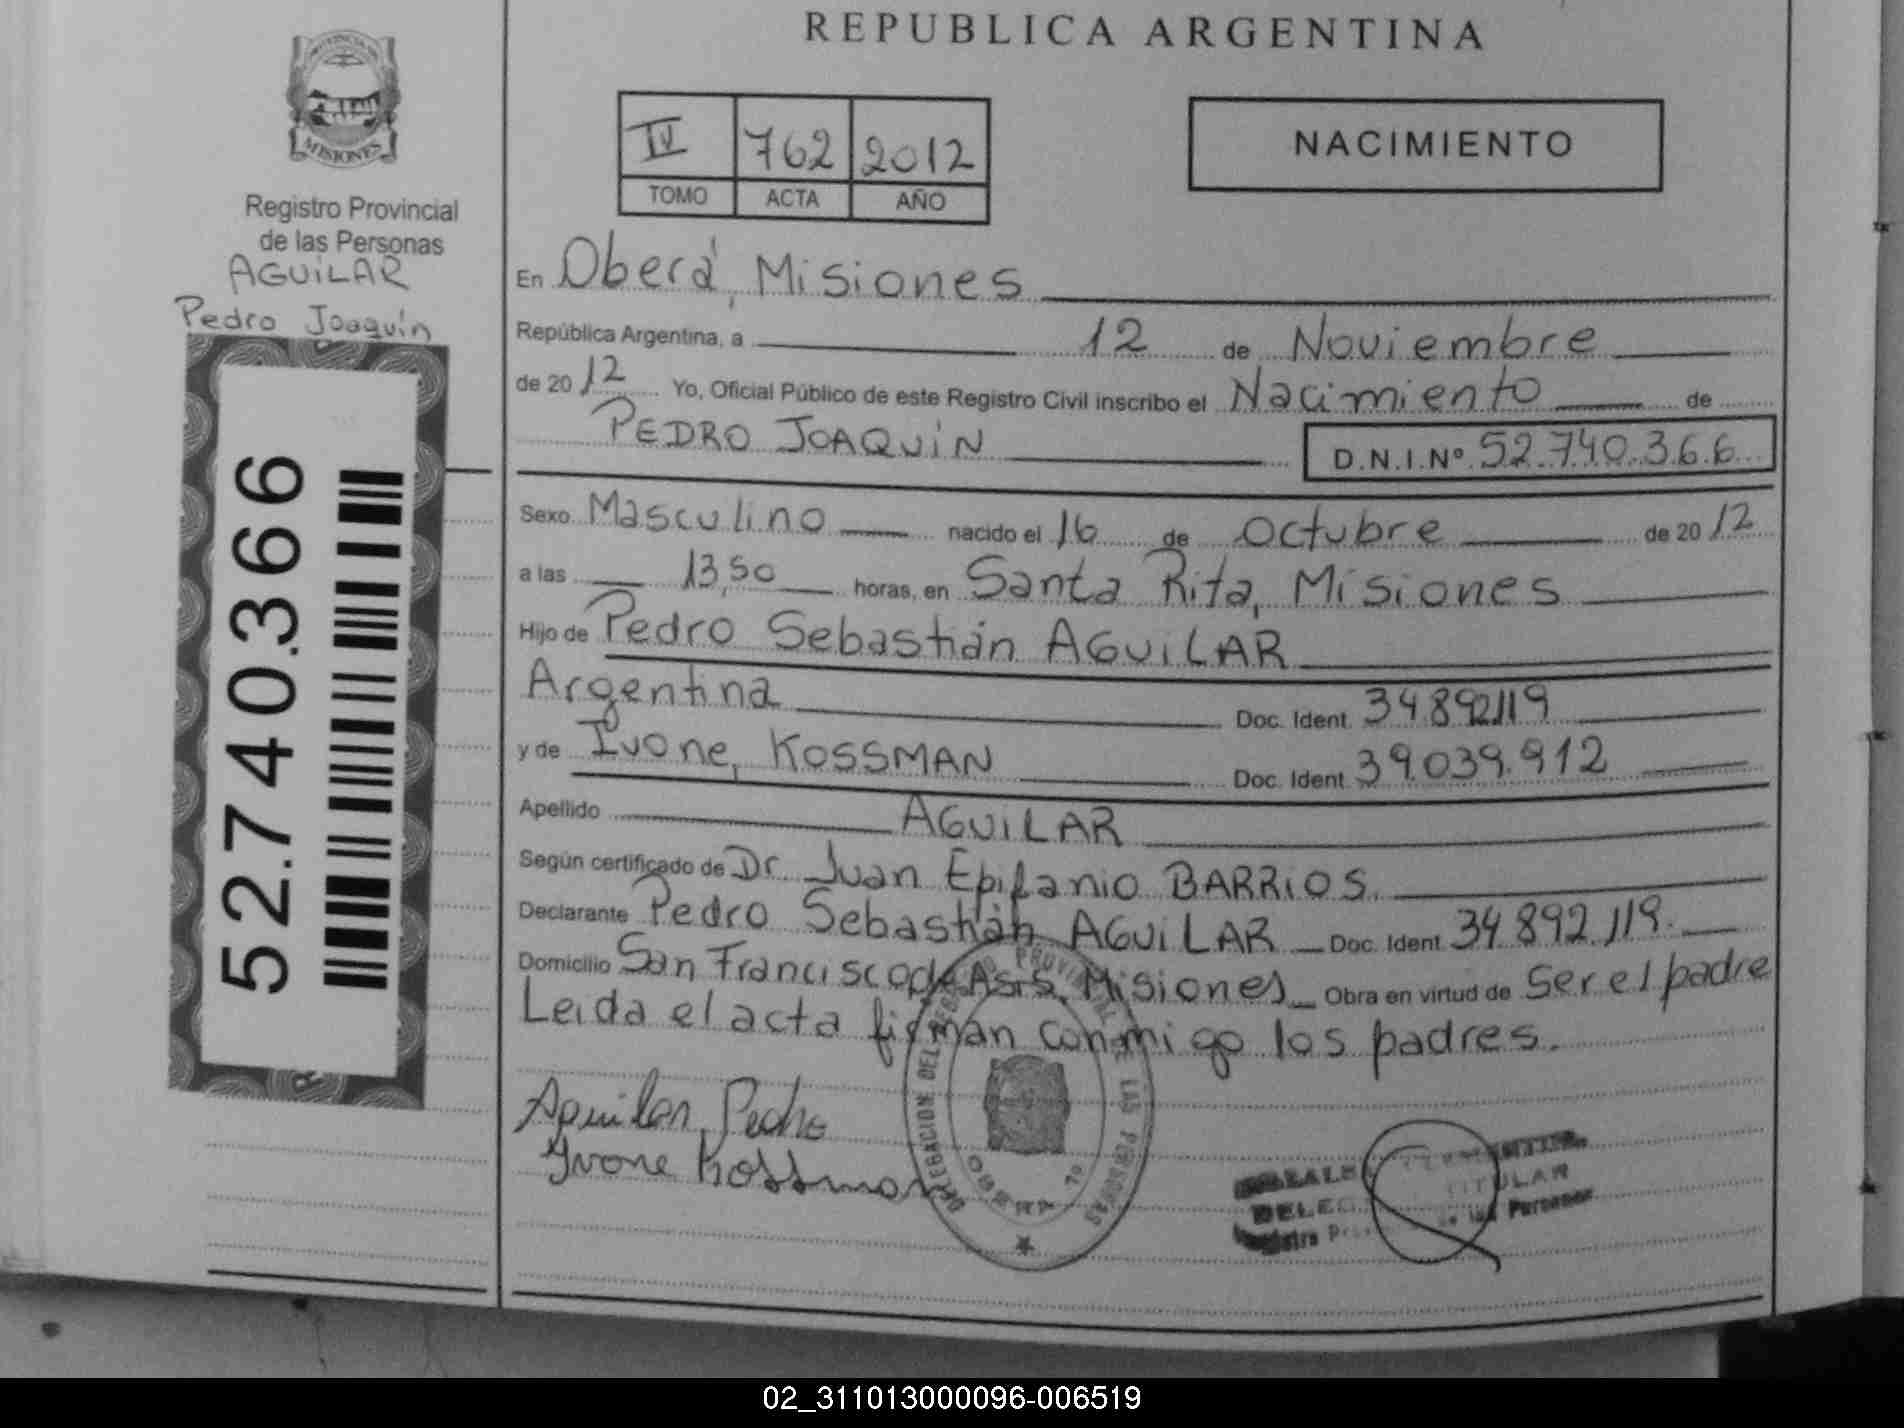 PROVINCIA DE
MISIONES
Registro Provincial
de las Personas
AGUILAR
Pedro Joaquín
52.740.366
REPUBLICA ARGENTINA
IV 762 2012
TOMO ACTA AÑO
NACIMIENTO
En Oberá, Misiones
República Argentina, a 12 de Noviembre
de 2012 Yo, Oficial Público de este Registro Civil inscribo el Nacimiento de
PEDRO JOAQUÍN D.N.I.Nº 52.740.366
Sexo Masculino nacido el 16 de Octubre de 2012
a las 13,50 horas, en Santa Rita, Misiones
Hijo de Pedro Sebastián AGUILAR
Argentina Doc. Ident. 34.892.119
y de Ivone, KOSSMAN Doc. Ident. 39.039.912
Apellido AGUILAR
Según certificado de Dr. Juan Epifanio BARRIOS.
Declarante Pedro Sebastián AGUILAR Doc. Ident. 34.892.119.
Domicilio San Francisco de Asís, Misiones Obra en virtud de Ser el padre
Leida el acta firman conmigo los padres.
Aguilar Pedro
Yvone Kossman
DELEGACION DEL REGISTRO PROVINCIAL DE LAS PERSONAS
OBERA
TITULAR
de las Personas
02_311013000096-006519